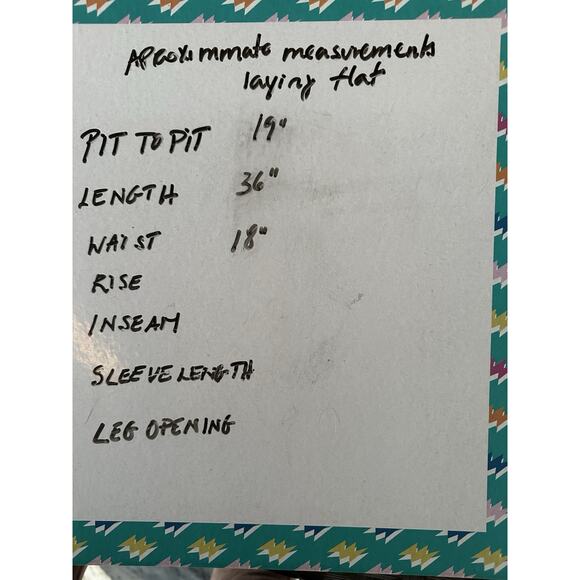 Aproximmate measurements
laying flat
PIT TO PIT 19"
LENGTH 36"
WAIST 18"
RISE
INSEAM
SLEEVE LENGTH
LEG OPENING